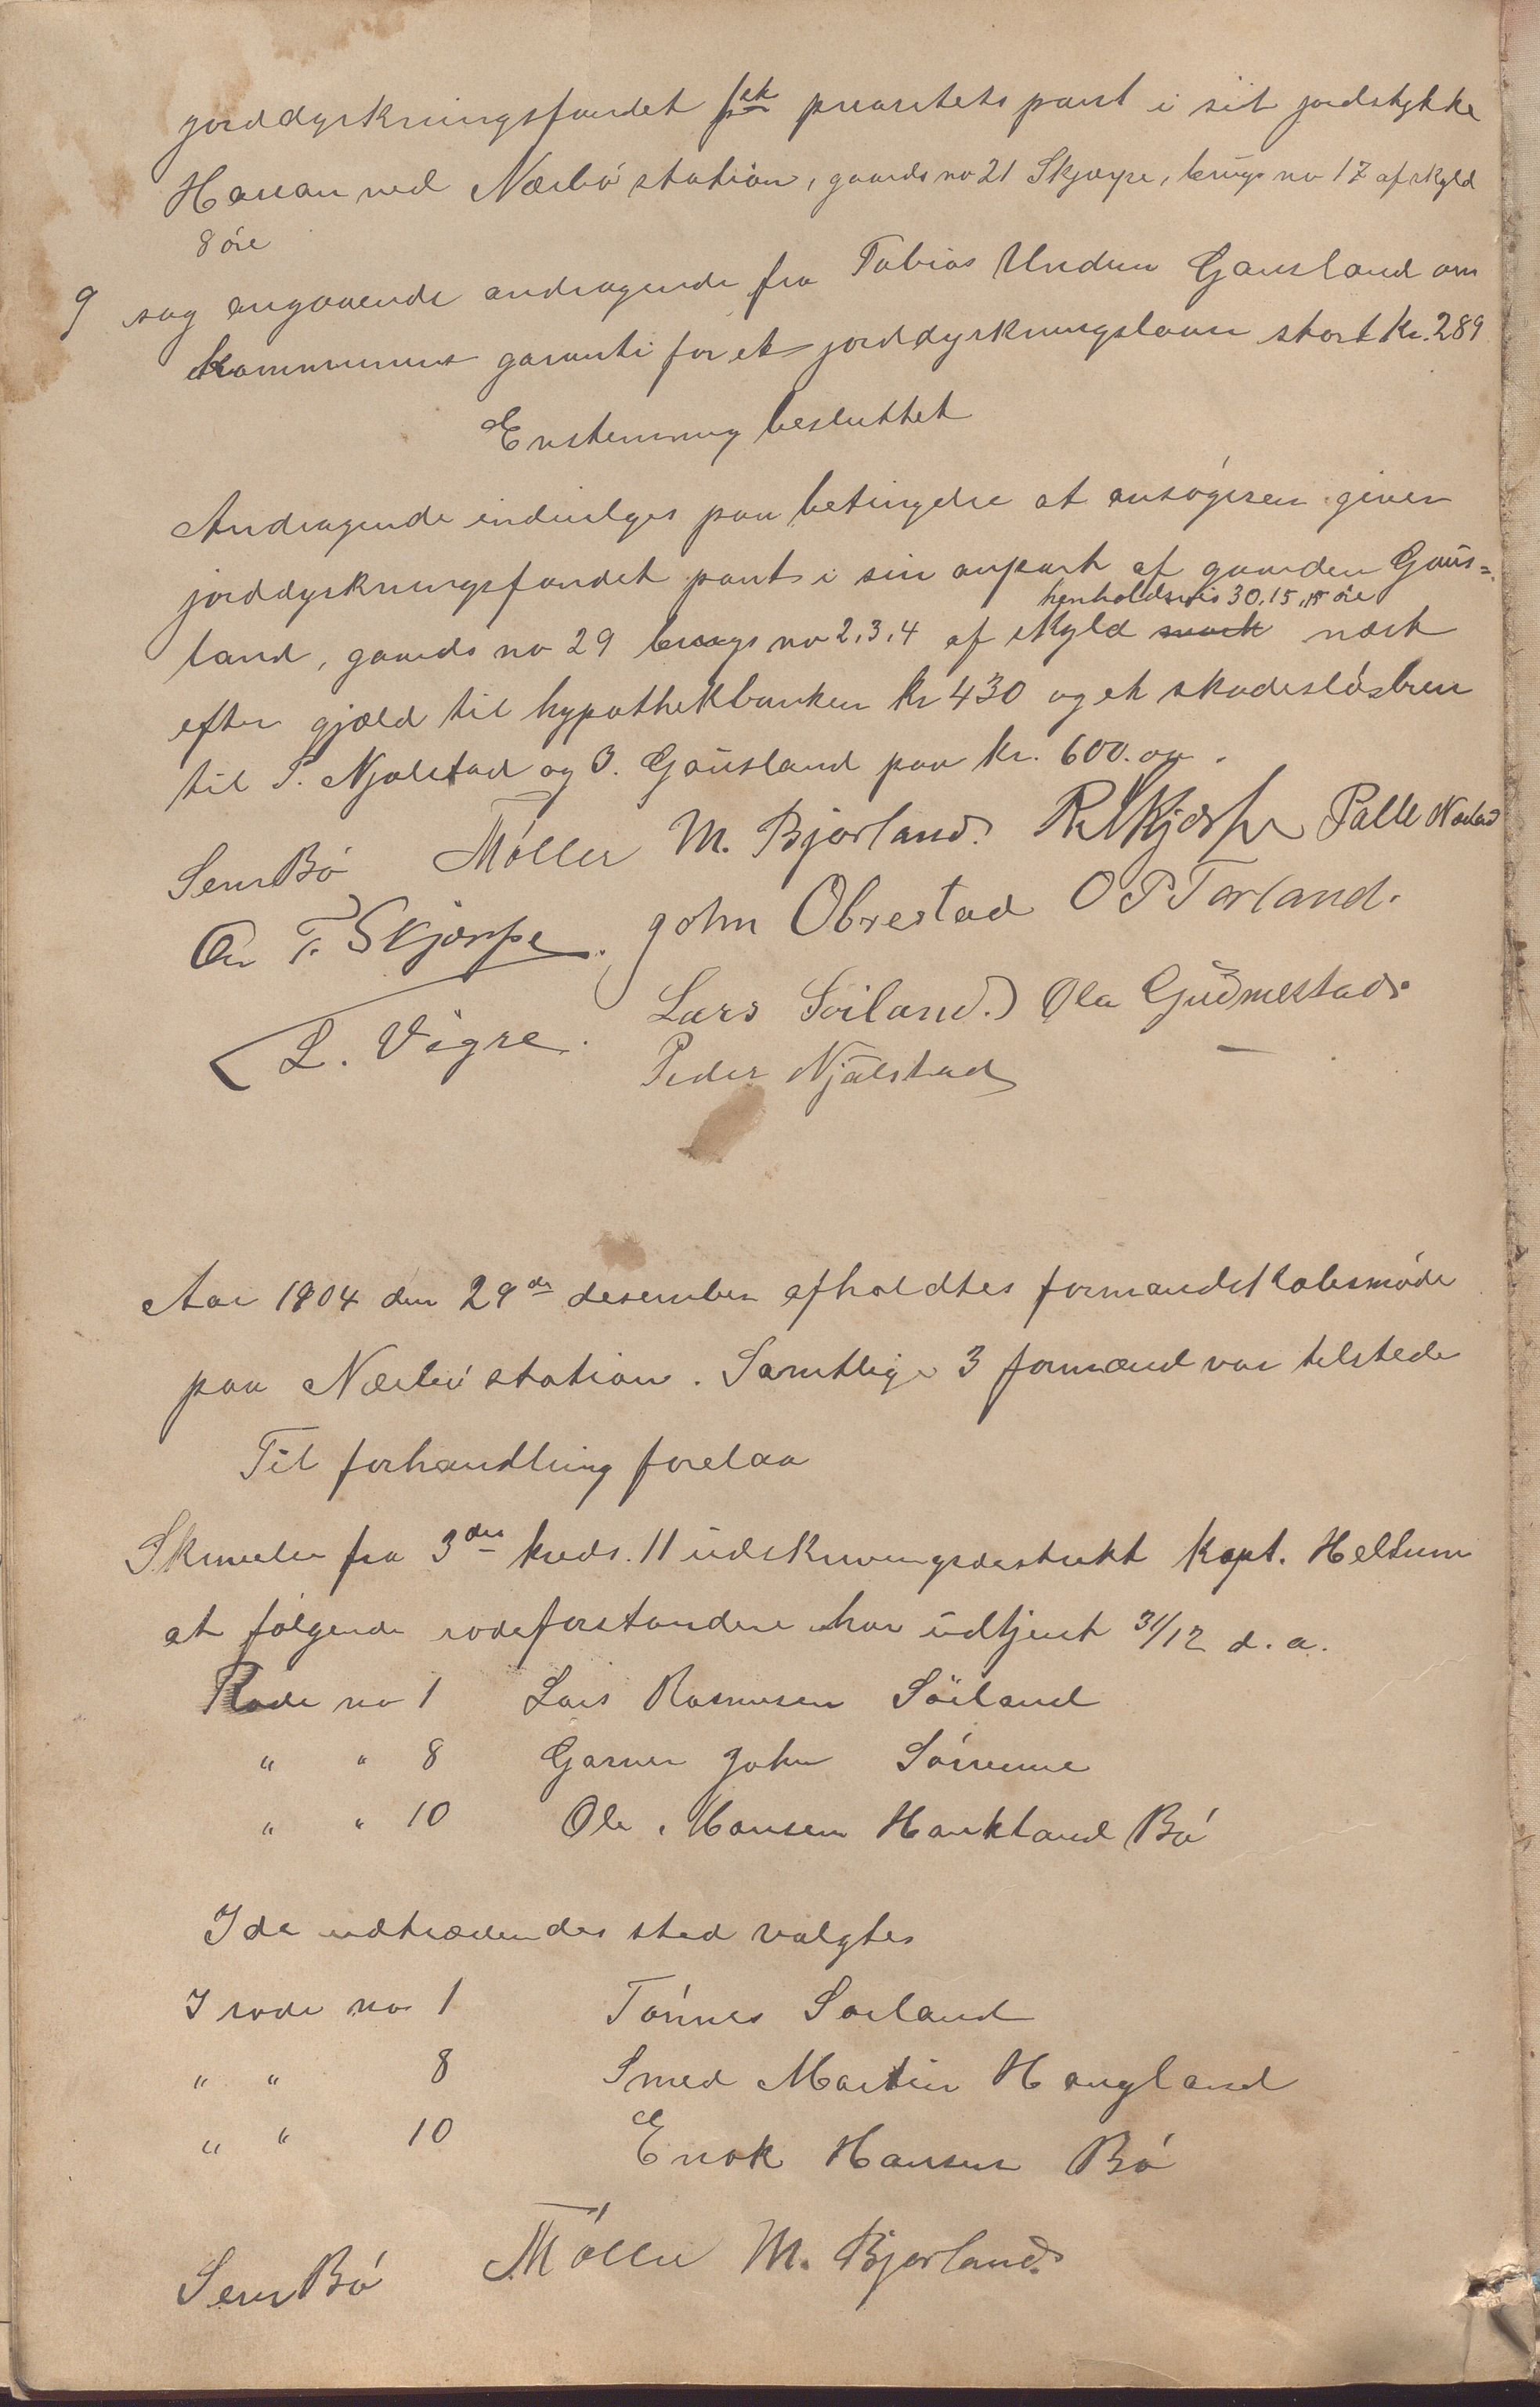 jorddyrkningsfondet 1ste prioritets pant i sit jordstykke
Hanan ved Nærbø station, gaards no 21 Skjærpe, brugs no 17 af skyld
8 øre
9 sag angaaende andragende fra Tobias Undem Gausland om
kommunens garanti for et jorddyrkningslaan stort kr. 289
Enstemmig besluttet
Andragende indvilges paa betingelse at ansøgeren giver
jorddyrkningsfondet pant i sin anpart af gaarden Gaus=
henholdsvis 30, 15, 15 øre
land, gaards no 29 brugs no 2, 3, 4 af skyld næst
efter gjæld til hypothekbanken kr 430 og et skadesløsbrev
til P. Njølstad og O. Gausland paa kr. 600.00.
Sem Bø Møller M. Bjorland. R Skjærpe Palle Nærland
T. Skjærpe. John Obrestad O P Torland.
L. Vigre. Lars Søiland. Ola Gudmestad.
Peder Njølstad
Aar 1904 den 29de desember afholdtes formandskabsmøde
paa Nærbø station. Samtlige 3 formænd var tilstede
Til forhandling forelaa
Skrivelse fra 3die kreds. 11 udskrivningsdistrikt kapt. Heltum
at følgende rodeforstandere har udtjent 31/12 d. a.
Rode no 1 Lars Rasmusen Söiland
" " 8 Garver John
" " 10 Ole Hansen Haukland Bø
I de udtrædendes sted valgtes
I rode no 1 Tønnes Soiland
" " 8 Smed Martin Haugland
" " 10 Enok Hansen Bø
Sem Bø Møller M. Bjorland.